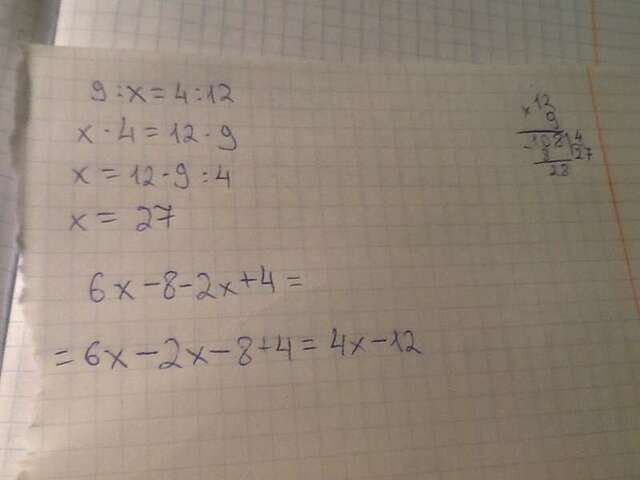 9 : x = 4 : 12
x · 4 = 12 · 9
x = 12 · 9 : 4
x = 27
6x - 8 - 2x + 4 =
= 6x - 2x - 8 + 4 = 4x - 12
× 12
9
- 108 | 4
8 27
28